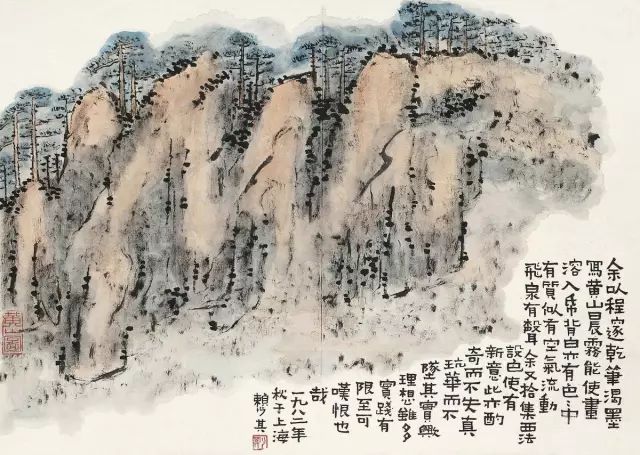 余以程邃乾筆渴墨
寫黄山晨霧能使畫
溶入帋背白亦有色〻中
有質似有空氣流動
飛泉有聲耳余又拾集西法
設色使有
新意此亦酌
奇而不失真
玩華而不
墜其實歟
理想雖多
實踐有
限至可
嘆恨也
哉
一九八二年
秋于上海
賴少其